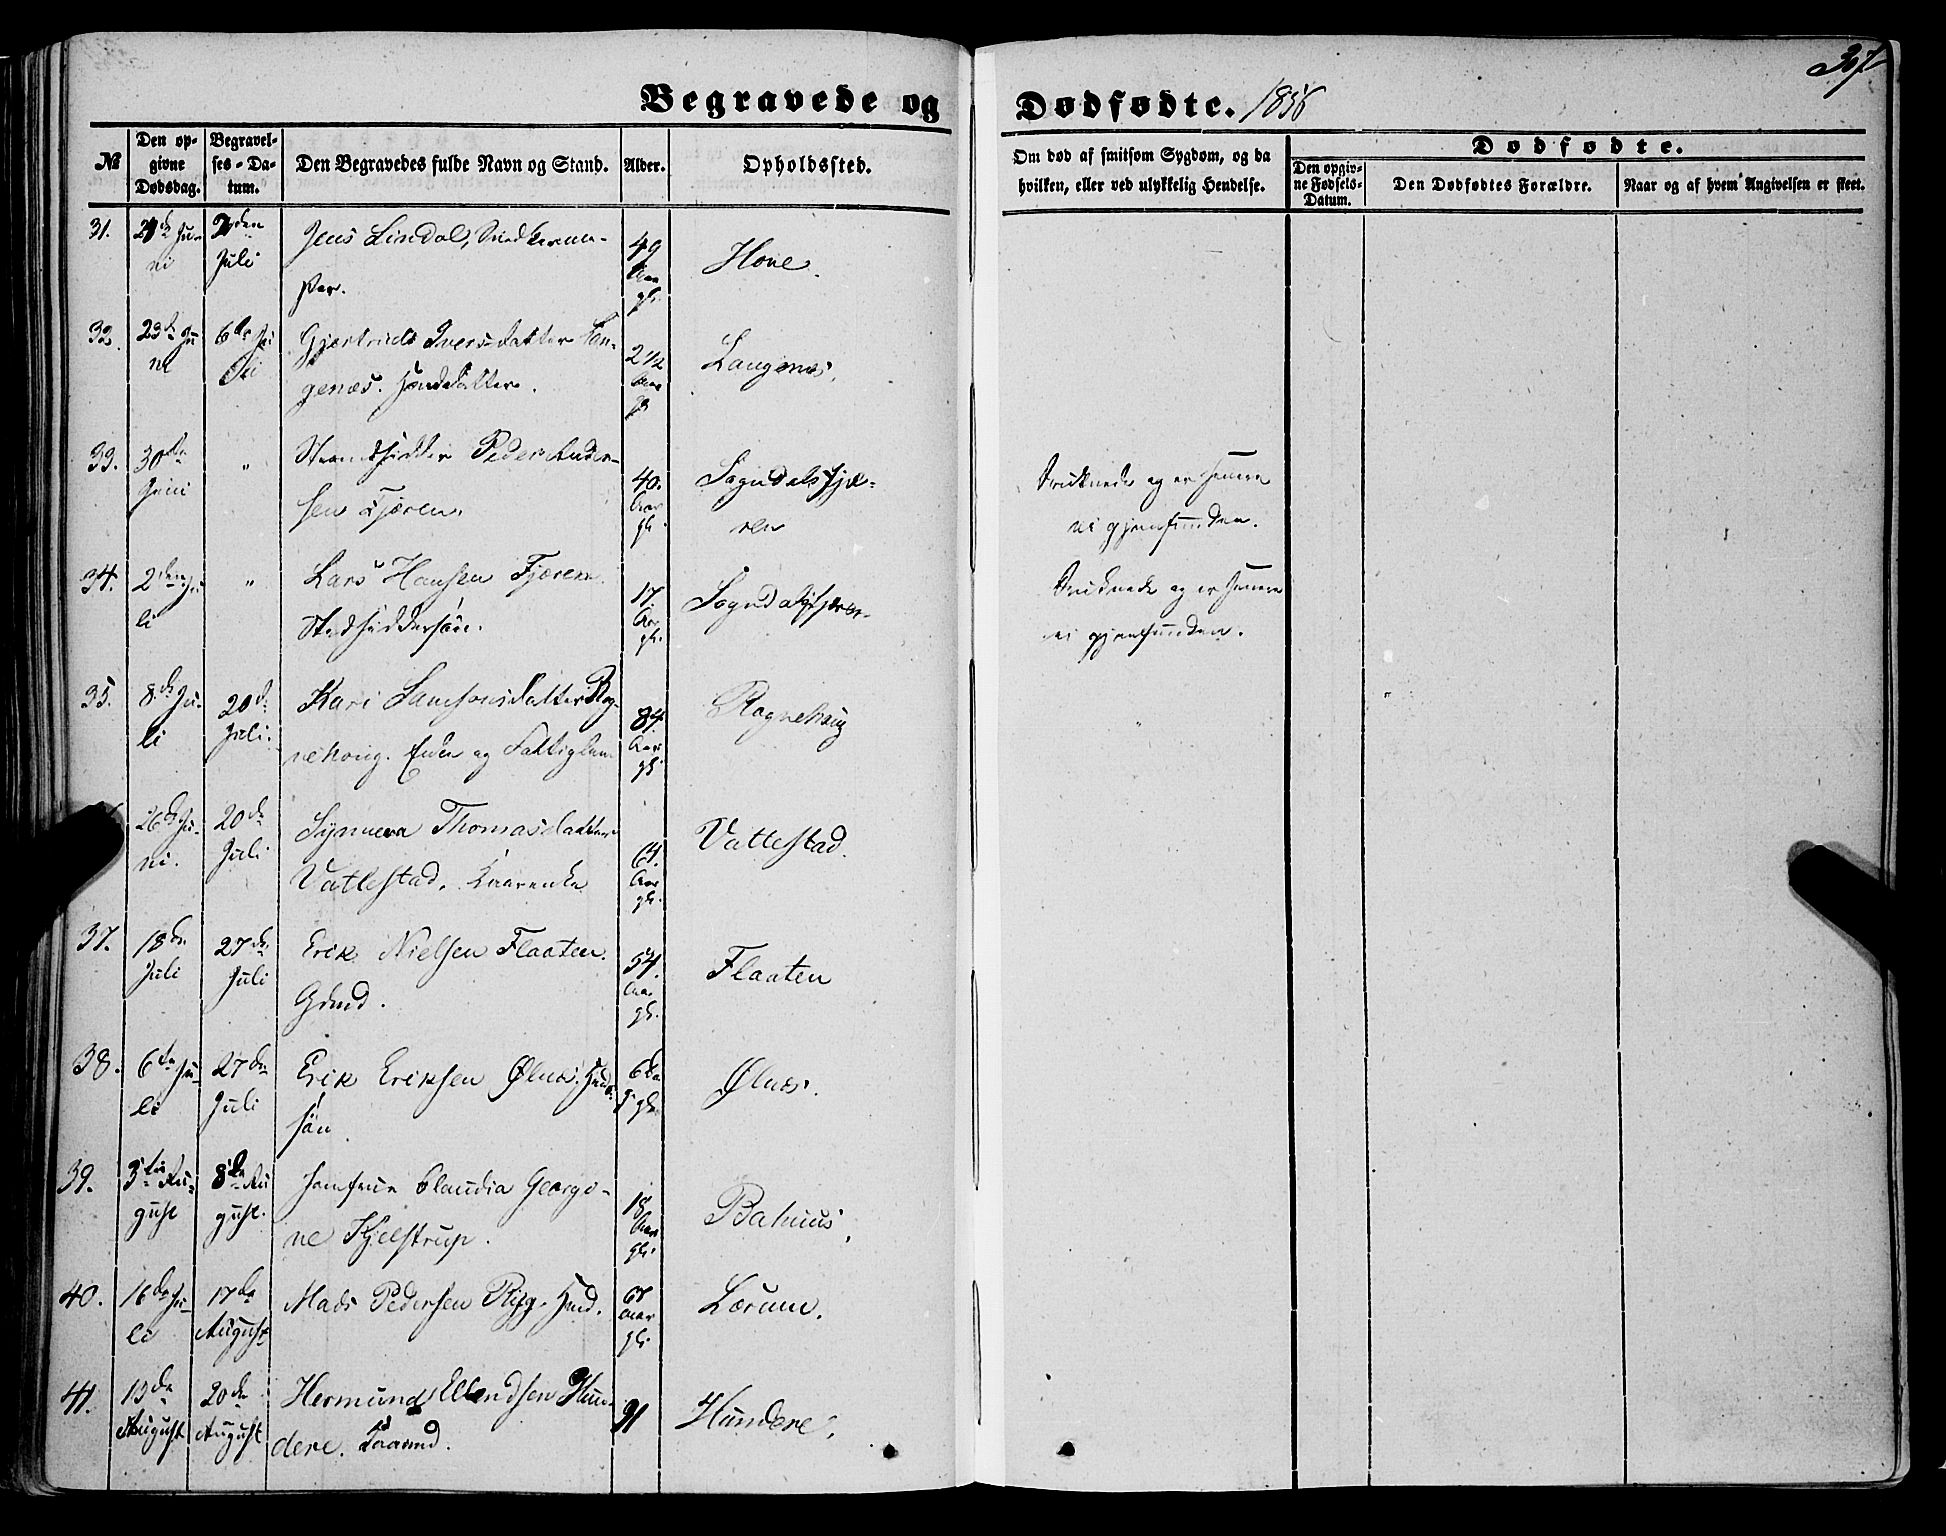 307
Begravede og Dødfødte. 1856
№
Den opgivne Dødsdag.
Begravelses-Datum.
Den Begravedes fulde Navn og Stand.
Alder.
Opholdssted.
Om død af smitsom Sygdom, og da
hvilken, eller ved ulykkelig Hendelse.
Dødfødte.
Den opgivne Fødsels-Datum.
Den Dødfødtes Forældre.
Naar og af hvem Angivelsen er skeet.
31. Juni 2den Juli Jens Lindal, 49 Aar gl. Hove.
32. 23de Juni 6te Juli Gjertrud Iversdatter Langenæs. 2 1/2 Aar gl. Langenæs.
33. 30te Juni " Strandsidder Peder Andersen Fjæren. 40. Aar gl. Sogndalsfjæren
Druknede og er senere
ei gjenfunden.
34. 2den Juli " Lars Hansen Fjæren 17 Aar gl. Sogndalsfjæren
Druknede og er senere
ei gjenfunden.
35. 8de Juli 20de Juli. Kari Samsonsdatter Rognehoug. Enke og Fattiglem 84. Aar gl. Rognehoug
26de Juni. 20de Juli Synneva Thomasdatter Vatlestad. 64. Aar gl. Vatlestad.
37. 18de Juli 27de Juli Erik Nielsen Flaaten. Gbmd. 54. Aar gl. Flaaten
38. 6te Juli 27de Juli Erik Eriksen Ølnæs. søn 6 Dage gl. Ølnæs.
39. 3die August 8de August. Jomfrue Claudia Georgine Kjelstrup. 18 Aar gl.
40. 16de Juli 17de August Mads Pedersen Hmd. 67 Aar gl. Lærum.
41. 13de August 20de August Hermund Ellendsen Hundere. Kaarmd. 91 Hundere.